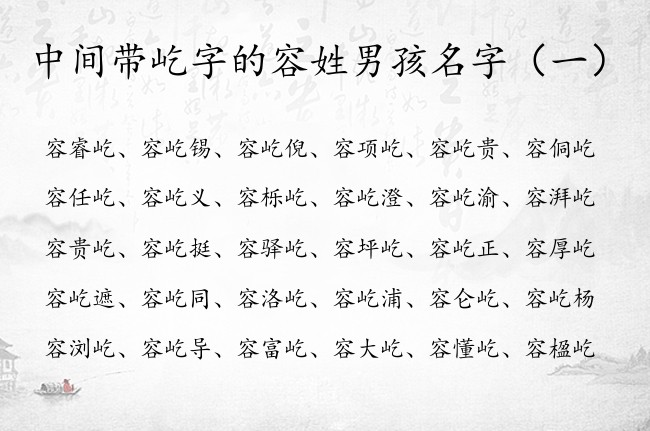 中间带屹字的容姓男孩名字（一）
容睿屹、容屹锡、容屹倪、容项屹、容屹贵、容侗屹
容任屹、容屹义、容栎屹、容屹澄、容屹渝、容湃屹
容贵屹、容屹挺、容驿屹、容坪屹、容屹正、容厚屹
容屹遮、容屹同、容洛屹、容屹浦、容仑屹、容屹杨
容浏屹、容屹导、容富屹、容大屹、容懂屹、容楹屹